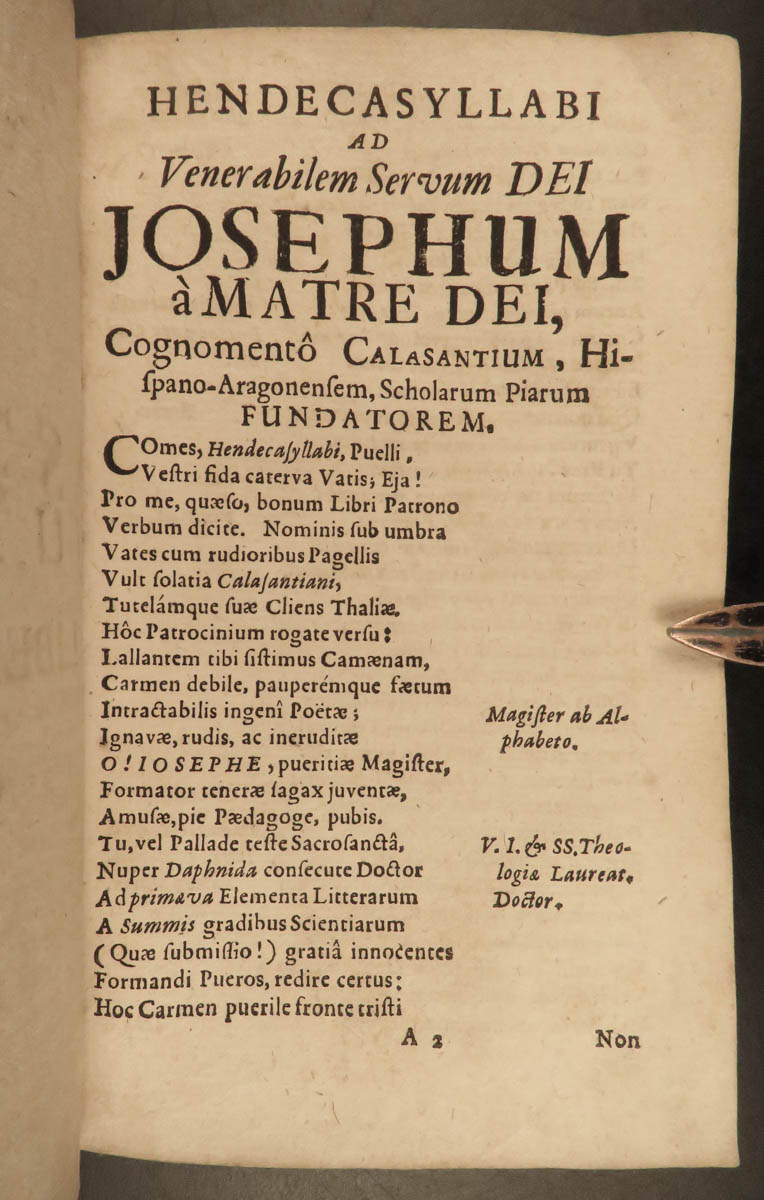 HENDECASYLLABI
AD
Venerabilem Servum DEI
JOSEPHUM
à MATRE DEI,
Cognomentô CALASANTIUM, Hi-
ſpano-Aragonenſem, Scholarum Piarum
FUNDATOREM.
COmes, Hendecaſyllabi, Puelli,
Veſtri fida caterva Vatis; Eja!
Pro me, quæſo, bonum Libri Patrono
Verbum dicite. Nominis ſub umbra
Vates cum rudioribus Pagellis
Vult ſolatia Calaſantiani,
Tutelámque ſuæ Cliens Thaliæ.
Hôc Patrocinium rogate verſu:
Lallantem tibi ſiſtimus Camænam,
Carmen debile, pauperémque fætum
Intractabilis ingenî Poëtæ;
Magiſter ab Al-
Ignavæ, rudis, ac ineruditæ
phabeto.
O! IOSEPHE, pueritiæ Magiſter,
Formator teneræ ſagax juventæ,
Amuſæ, pie Pædagoge, pubis.
Tu, vel Pallade teſte Sacroſanctâ,
V. I. & SS. Theo-
Nuper Daphnida conſecute Doctor
logiæ Laureat.
Ad primæva Elementa Litterarum
Doctor.
A Summis gradibus Scientiarum
(Quæ ſubmiſſio!) gratiâ innocentes
Formandi Pueros, redire certus:
Hoc Carmen puerile fronte triſti
A 2 Non